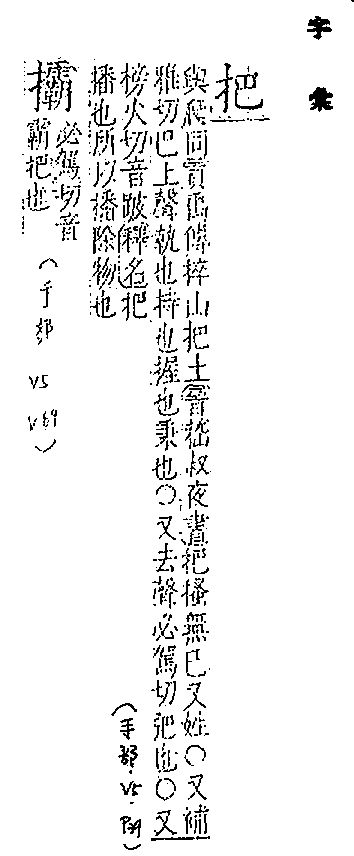 字彙
把
與爬同賈禹傳捽山把土晉嵇叔夜書把搔無已又姓○又補
雅切巴上聲執也持也握也秉也○又去聲必駕切弝也○又
榜火切音跛釋名把
播也所以播除物也
(手部.V5.P39)
㶚
必駕切音
霸把也
(手部 V5 V69)